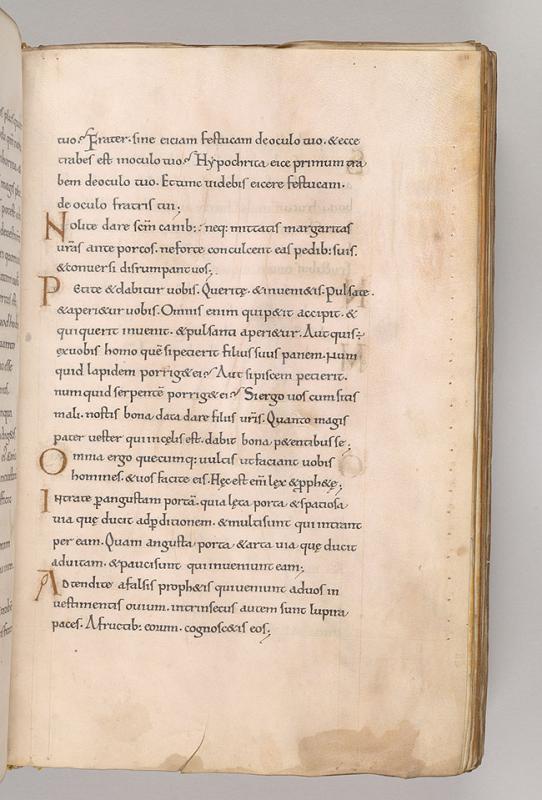 tuo. Frater. sine eiciam festucam deoculo tuo. & ecce
trabes est inoculo tuo. Hypochrita eice primum tra
bem deoculo tuo. Ettunc uidebis eicere festucam.
de oculo fratris tui;
Nolite dare scm canib;: neq; mittatis margaritas
uras ante porcos. neforte conculcent eas pedib; suis.
& conuersi disrumpant uos;
Petite & dabitur uobis. Querite. & inueni&is. Pulsate.
& aperi&ur uobis. Omnis enim quip&it accipit. &
qui querit inuenit. & pulsanti aperi&ur. Aut quis ÷
exuobis homo que sipecierit filius suus panem. Num
quid lapidem porrig& ei? Aut sipiscem pecierit.
numquid serpente porrig& ei? Siergo uos cum sitis
mali. nostis bona data dare filiis uris. Quanto magis
pater uester qui incelis est. dabit bona p&entibus se;
Omnia ergo quecumq; uultis ut faciant uobis
hommes. & uos facite eis. Hęc est em lęx & pph&ę;
Intrate pangustam porta. quia lęta porta & spaciosa
uia quę ducit adpditionem. & multi sunt qui intrant
per eam. Quam angusta porta & arta uia quę ducit
aduitam. & pauci sunt qui inueniunt eam;
Adtendite afalsis proph&is qui ueniunt aduos in
uestimentis ouium. intrinsecus autem sunt lupi ra
paces. A fructib; eorum. cognosc&is eos;